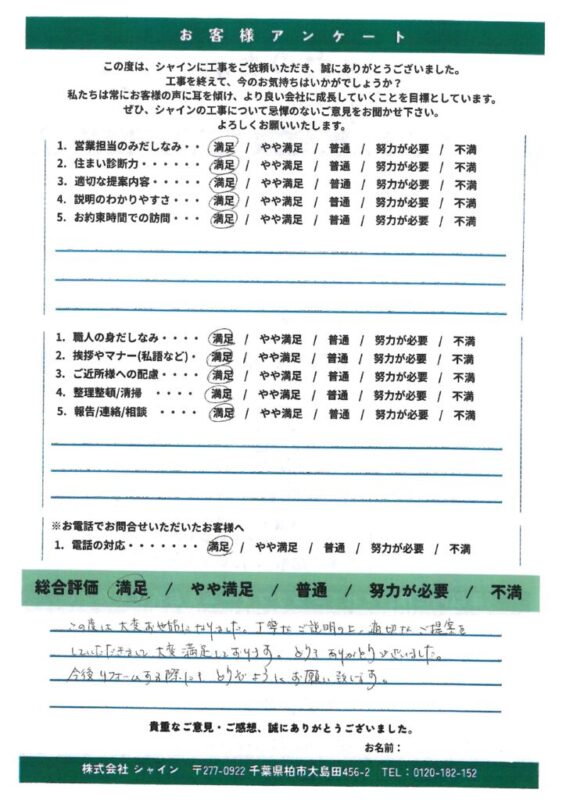 お客様アンケート
この度は、シャインに工事をご依頼いただき、誠にありがとうございました。
工事を終えて、今のお気持ちはいかがでしょうか？
私たちは常にお客様の声に耳を傾け、より良い会社に成長していくことを目標としています。
ぜひ、シャインの工事について忌憚のないご意見をお聞かせ下さい。
よろしくお願いいたします。
1. 営業担当のみだしなみ・・ 満足 / やや満足 / 普通 / 努力が必要 / 不満
2. 住まい診断力・・・・・・ 満足 / やや満足 / 普通 / 努力が必要 / 不満
3. 適切な提案内容・・・・・ 満足 / やや満足 / 普通 / 努力が必要 / 不満
4. 説明のわかりやすさ・・・ 満足 / やや満足 / 普通 / 努力が必要 / 不満
5. お約束時間での訪問・・・ 満足 / やや満足 / 普通 / 努力が必要 / 不満
1. 職人の身だしなみ・・・・ 満足 / やや満足 / 普通 / 努力が必要 / 不満
2. 挨拶やマナー(私語など)・ 満足 / やや満足 / 普通 / 努力が必要 / 不満
3. ご近所様への配慮・・・・ 満足 / やや満足 / 普通 / 努力が必要 / 不満
4. 整理整頓/清掃 ・・・・ 満足 / やや満足 / 普通 / 努力が必要 / 不満
5. 報告/連絡/相談 ・・・・ 満足 / やや満足 / 普通 / 努力が必要 / 不満
※お電話でお問合せいただいたお客様へ
1. 電話の対応・・・・・・・ 満足 / やや満足 / 普通 / 努力が必要 / 不満
総合評価 満足 / やや満足 / 普通 / 努力が必要 / 不満
この度は大変お世話になりました。丁寧なご説明の上、適切なご提案を
していただきまして大変満足しております。とても ありがとうございました。
今後リフォームする際にも どうぞよろしくお願い致します。
貴重なご意見・ご感想、誠にありがとうございました。
お名前：
株式会社 シャイン 〒277-0922 千葉県柏市大島田456-2 TEL：0120-182-152